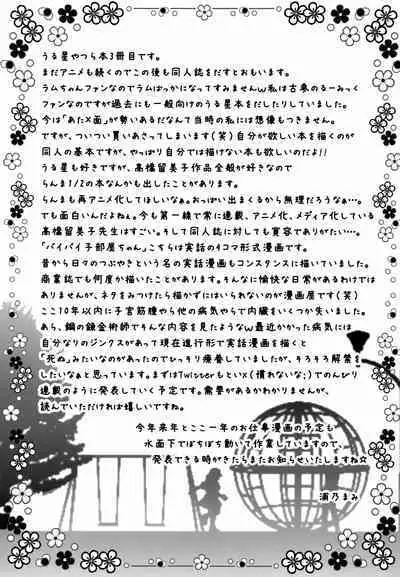 うる星やつら本3冊目です。
まだアニメも続くのでこの後も同人誌をだすとおもいます。
ラムちゃんファンなのでラムばっかになってすみませんw私は古参のるーみっく
ファンなのですが過去にも一般向けのうる星本をだしたりしていました。
今は「あた×面」が勢いあるだなんて当時の私には想像もつきません。
ですが、ついつい買いあさってしまいます(笑)自分が欲しい本を描くのが
同人の基本ですが、やっぱり自分では描けない本も欲しいのだよ!!
うる星も好きですが、高橋留美子作品全般が好きなので
らんま1/2の本なんかも出したことがあります。
らんまも再アニメ化してほしいなぁ。おっぱい出まくるから無理だろうなぁ…。
でも面白いんだよねぇ。今も第一線で常に連載、アニメ化、メディア化している
高橋留美子先生はすごい。そして同人誌に対しても寛容でありがたい…。
「バイバイ子部屋ちゃん」こちらは実話の4コマ形式漫画です。
昔から日々のつぶやきという名の実話漫画もコンスタンスに描いていました。
商業誌でも何度か描いたことがあります。そんなに愉快な日常があるわけでは
ありませんが、ネタをみつけたら描かずにはいられないのが漫画屋です(笑)
ここ10年以内に子宮筋腫やら他の病気やらで内臓をいくつか失いました。
あら、鋼の錬金術師でそんな内容を見たようなw最近かかった病気には
自分なりのジンクスがあって現在進行形で実話漫画を描くと
「死ぬ」みたいなのがあったのでひっそり療養していましたが、そろそろ解禁を
したいなぁと思っています。まずはTwitterもといX(慣れないな;)でのんびり
連載のように発表していく予定です。需要があるかわかりませんが、
読んでいただければ嬉しいですね。
今年来年とここ一年のお仕事漫画の予定も
水面下でぼちぼち動いて作業していますので、
発表できる時がきたらまたお知らせいたしますね☆
浦乃まみ